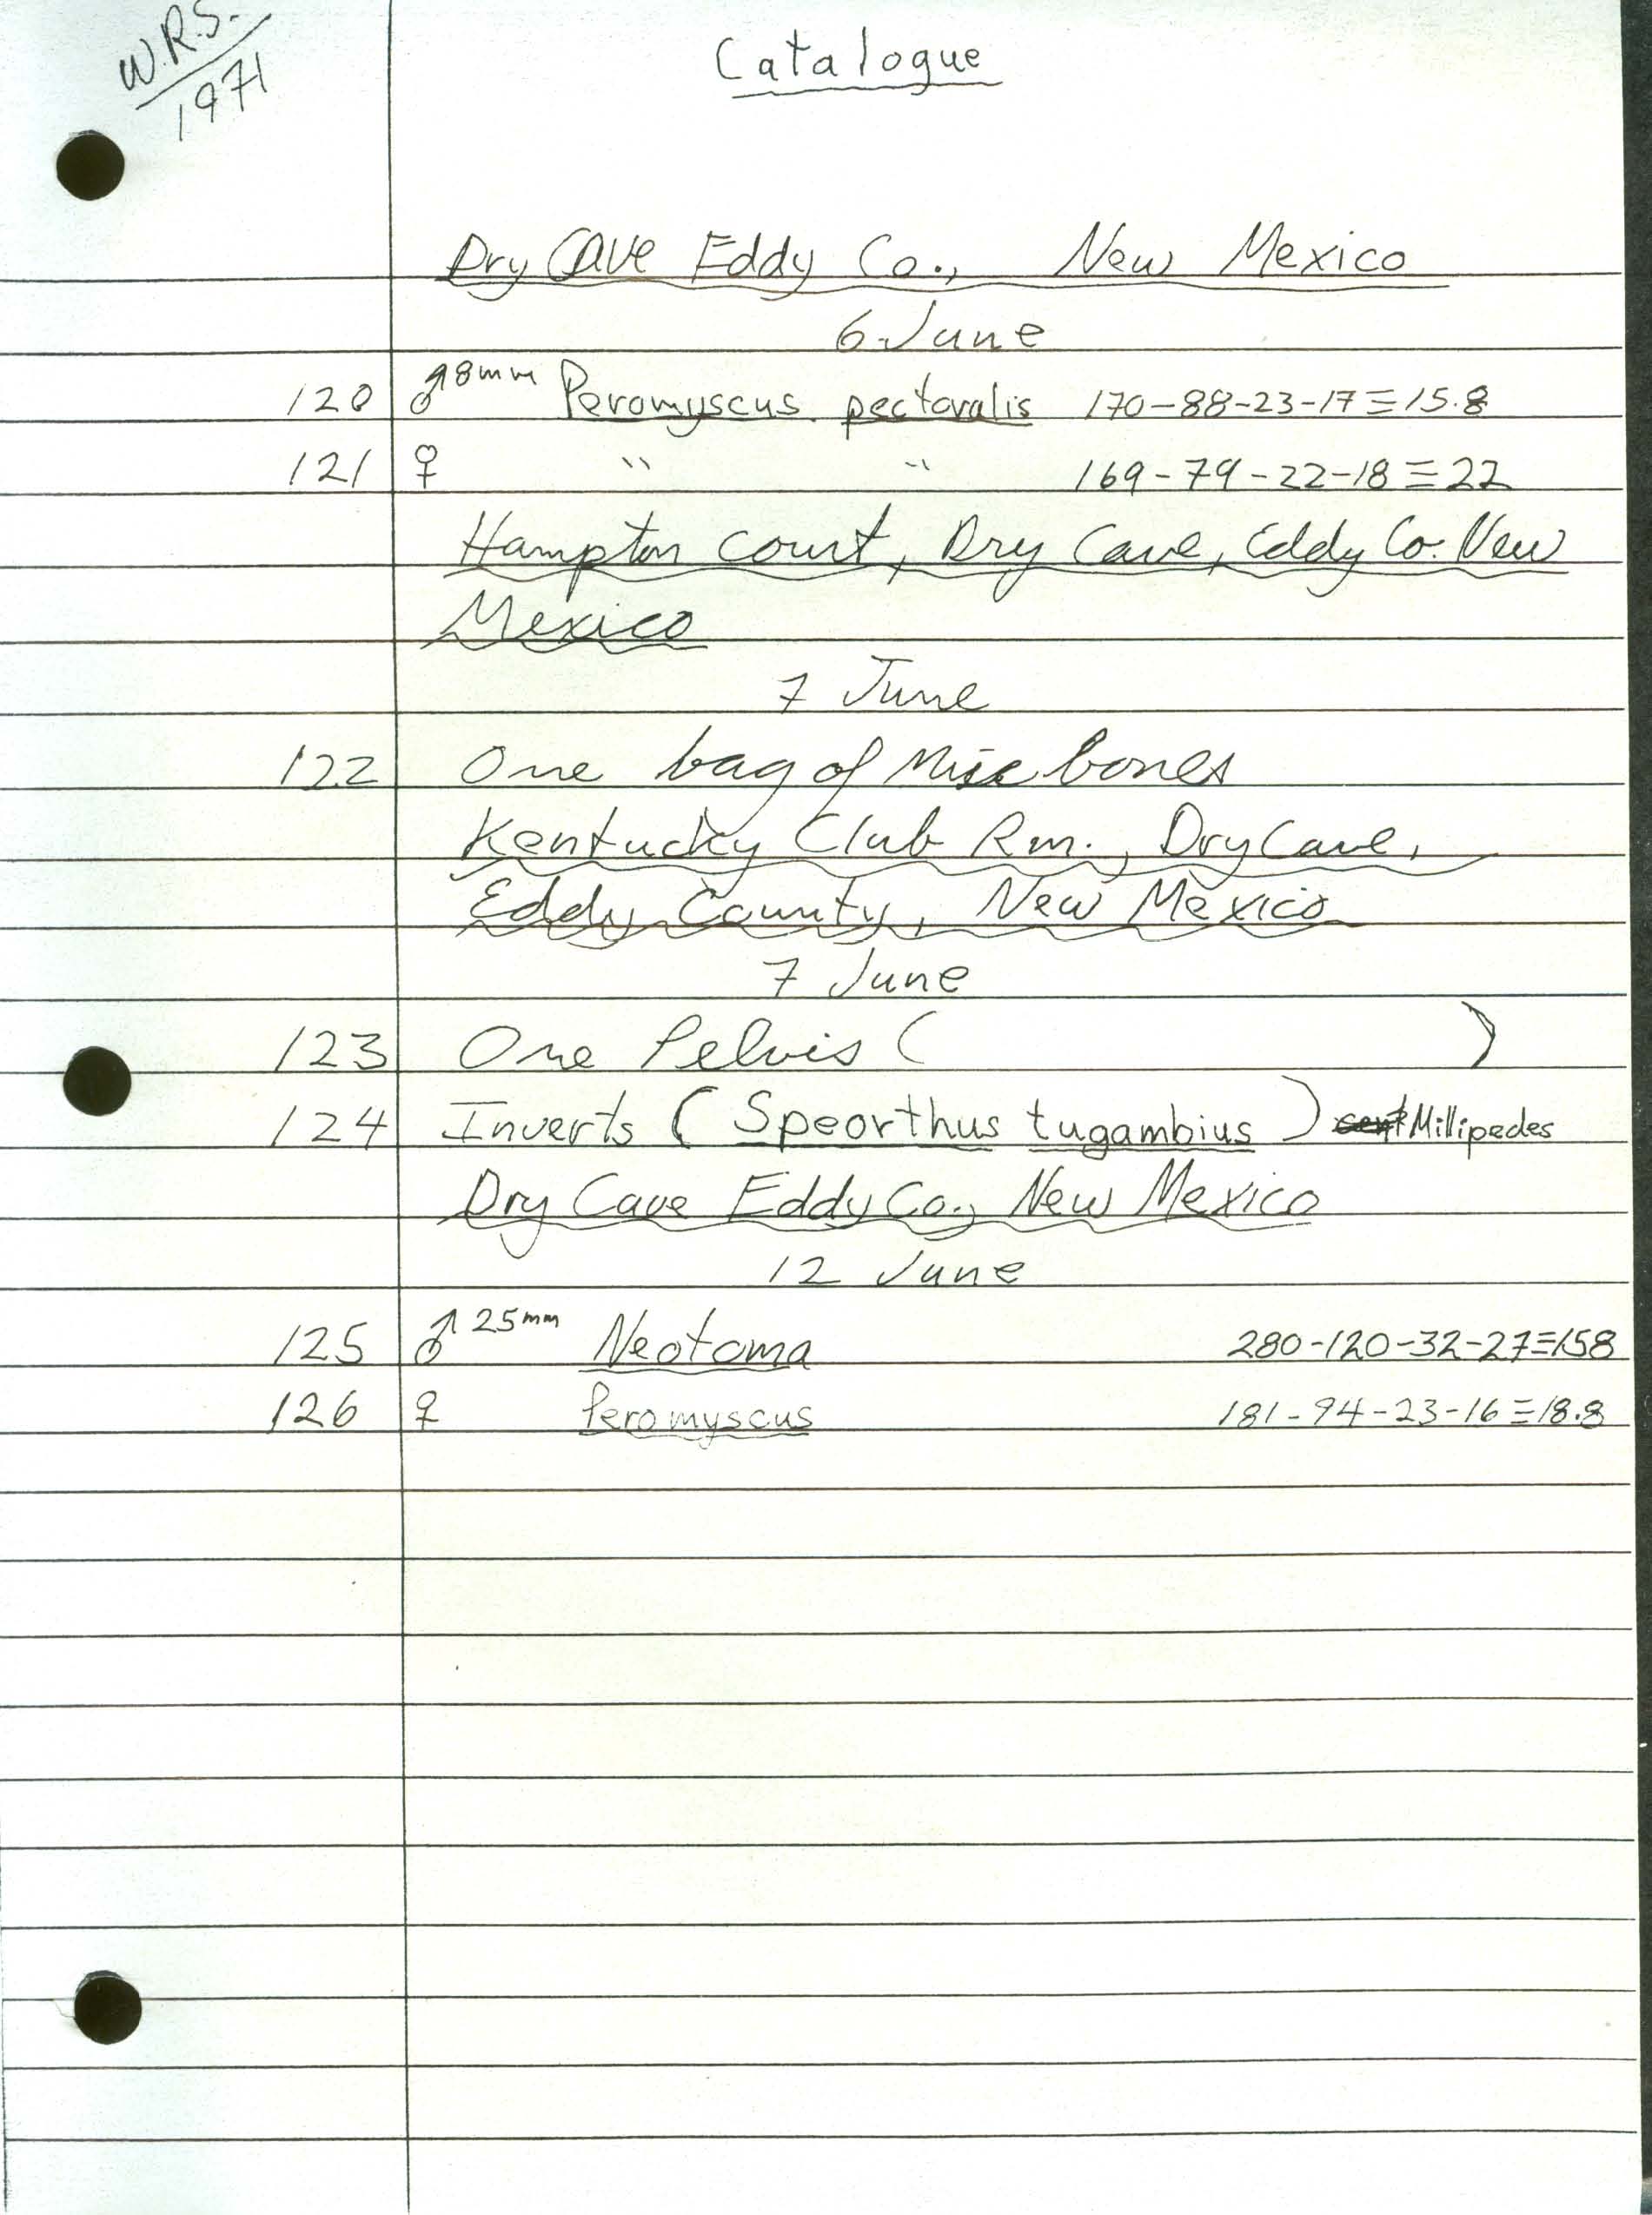 W.R.S.
1971
Catalogue
Dry Cave Eddy Co., New Mexico
6 June
120 ♂ 8mm Peromyscus pectoralis 170-88-23-17≡15.8
121 ♀ " " 169-79-22-18≡22
Hampton Court, Dry Cave, Eddy Co. New
Mexico
7 June
122 One bag of Misc bones
Kentucky Club Rm., Dry Cave,
Eddy County, New Mexico
7 June
123 One Pelvis ( )
124 Inverts (Speorthus tugambius) Millipedes
Dry Cave Eddy Co., New Mexico
12 June
125 ♂ 25mm Neotoma 280-120-32-27≡158
126 ♀ Peromyscus 181-94-23-16≡18.8